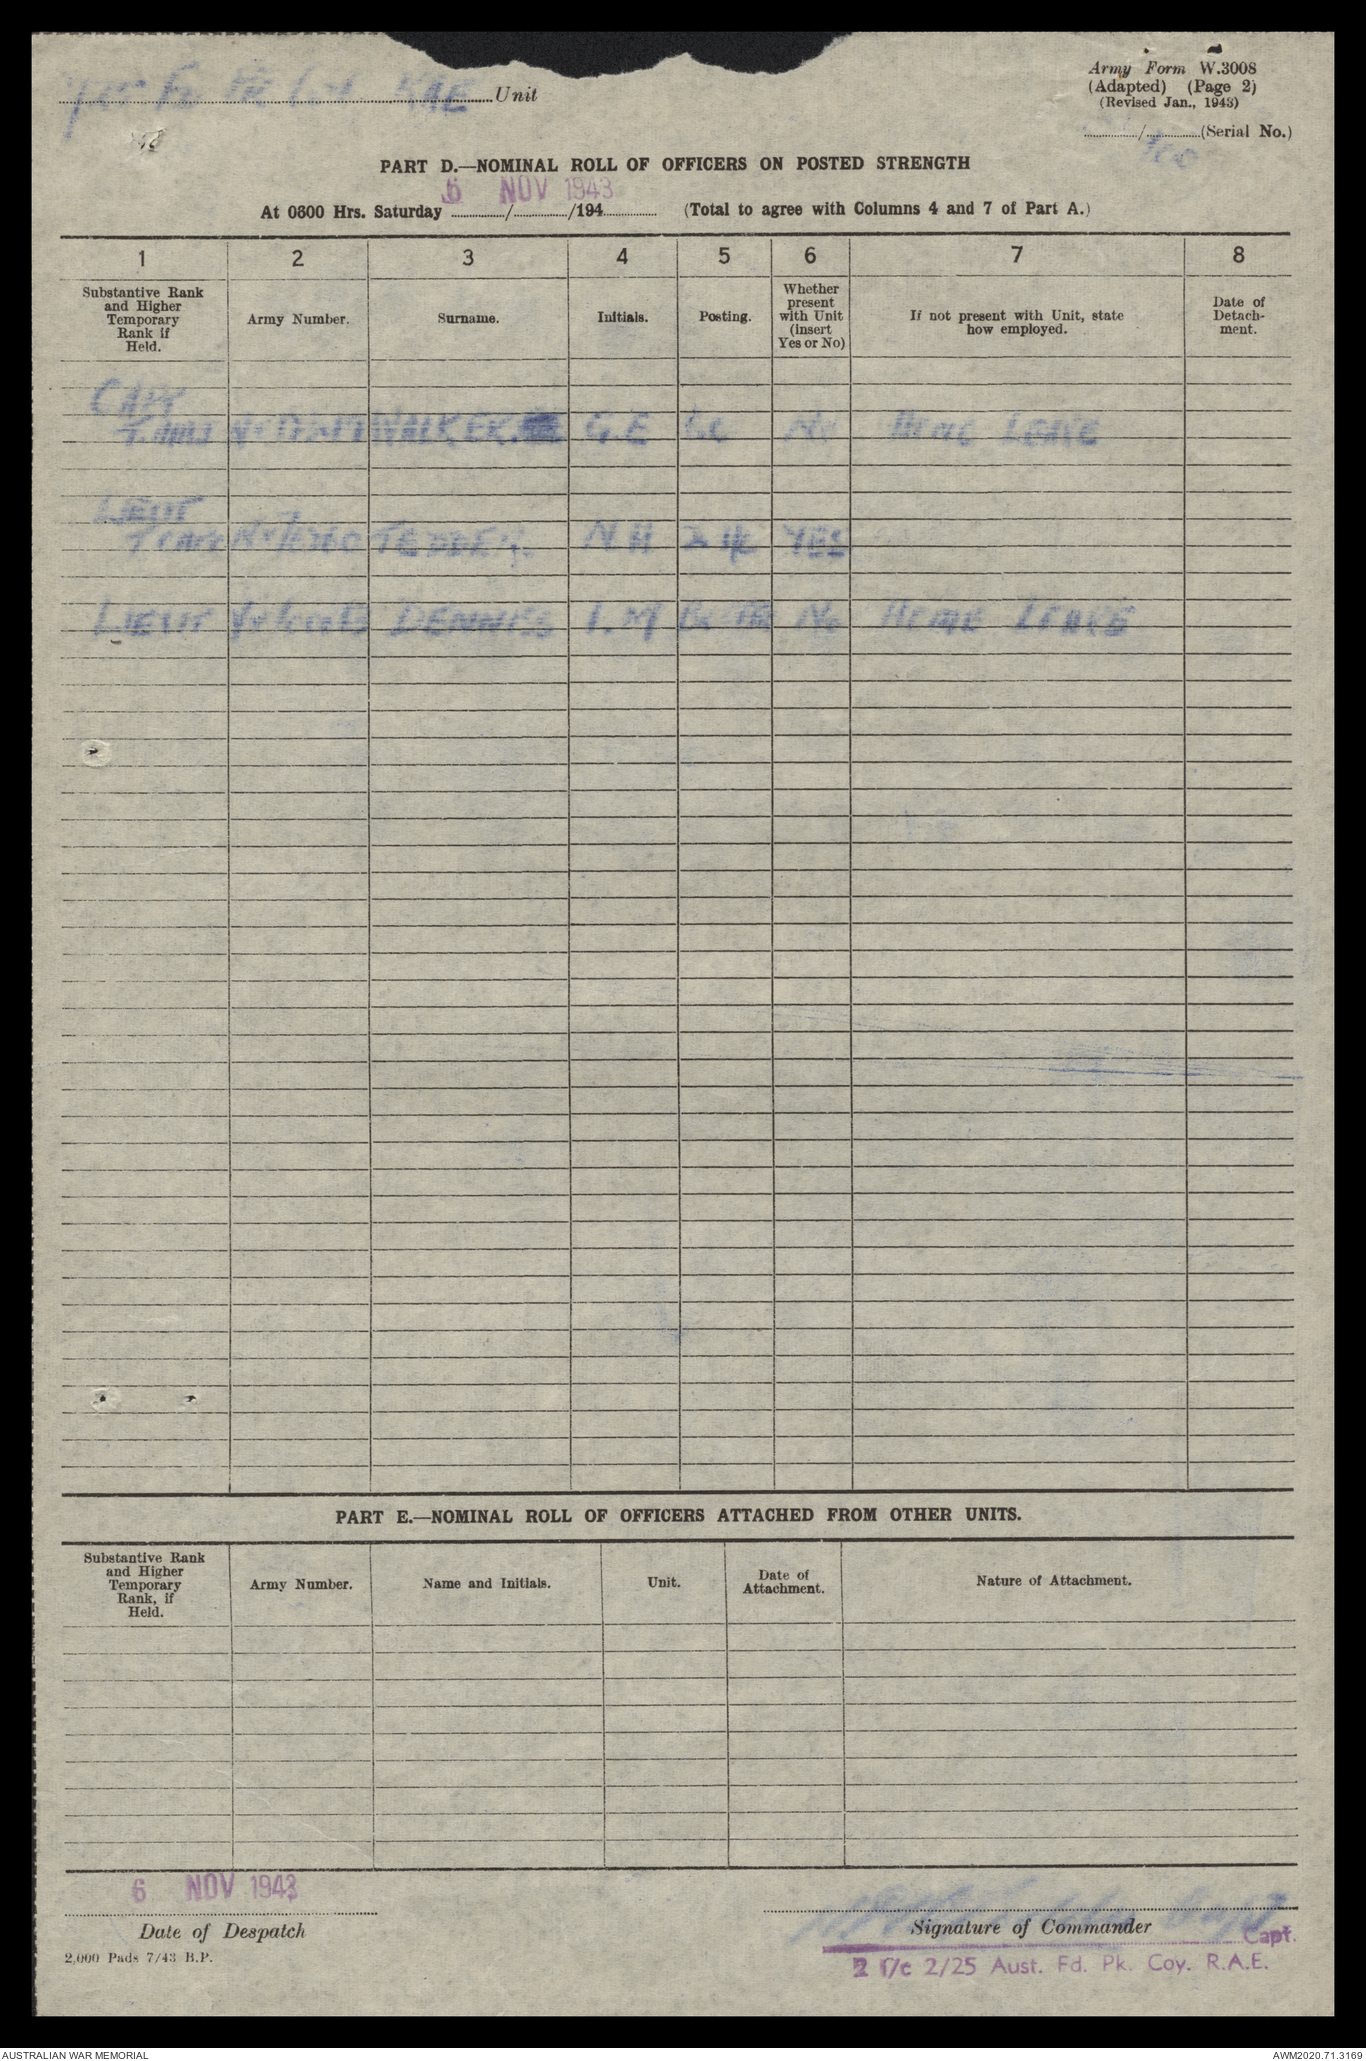 Fd Pk RAE Unit
Army Form W.3008
(Adapted) (Page 2)
(Revised Jan., 1943)
/ (Serial No.)
PART D.—NOMINAL ROLL OF OFFICERS ON POSTED STRENGTH
6 NOV 1943
At 0600 Hrs. Saturday / /194 (Total to agree with Columns 4 and 7 of Part A.)
1 2 3 4 5 6 7 8
Substantive Rank and Higher Temporary Rank if Held.
Army Number.
Surname.
Initials.
Posting.
Whether present with Unit (insert Yes or No)
If not present with Unit, state how employed.
Date of Detachment.
CAPT
WALKER G.E No HOME LEAVE
LIEUT
TEDDER N.H 2 i/c YES
LIEUT DENNISS I.M No HOME LEAVE
PART E.—NOMINAL ROLL OF OFFICERS ATTACHED FROM OTHER UNITS.
Substantive Rank and Higher Temporary Rank, if Held.
Army Number.
Name and Initials.
Unit.
Date of Attachment.
Nature of Attachment.
6 NOV 1943
Date of Despatch
2,000 Pads 7/43 B.P.
Signature of Commander
Capt.
2 I/c 2/25 Aust. Fd. Pk. Coy. R.A.E.
AUSTRALIAN WAR MEMORIAL
AWM2020.71.3169